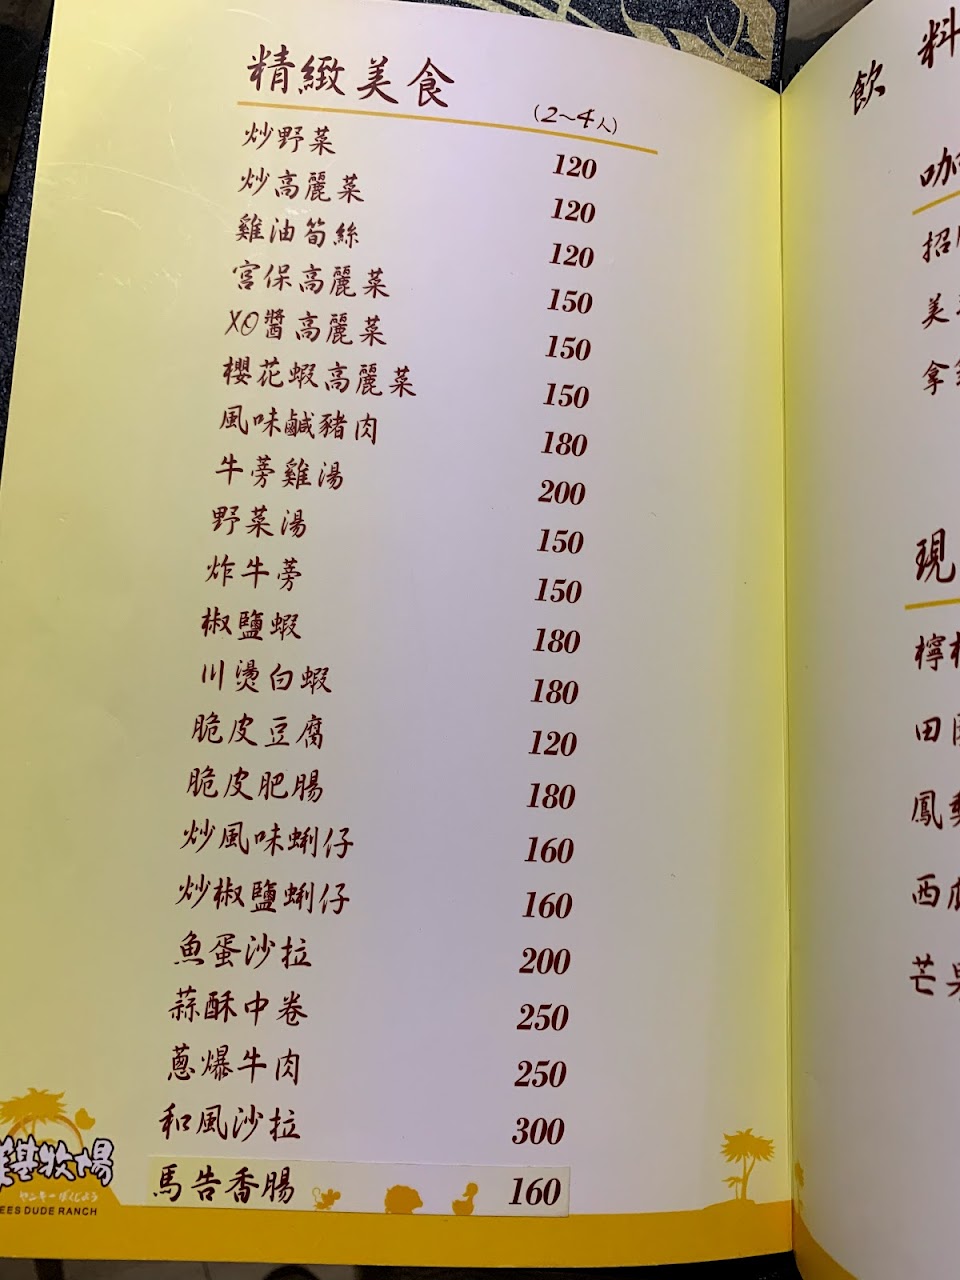 精緻美食 (2~4人)
炒野菜 120
炒高麗菜 120
雞油筍絲 120
宮保高麗菜 150
XO醬高麗菜 150
櫻花蝦高麗菜 150
風味鹹豬肉 180
牛蒡雞湯 200
野菜湯 150
炸牛蒡 150
椒鹽蝦 180
川燙白蝦 180
脆皮豆腐 120
脆皮肥腸 180
炒風味蜊仔 160
炒椒鹽蜊仔 160
魚蛋沙拉 200
蒜酥中卷 250
蔥爆牛肉 250
和風沙拉 300
馬告香腸 160
基牧場
ヤンキーぼくじょう
EES DUDE RANCH
飲料
咖
招
美
拿
現
檸
田
鳳
西
芒果